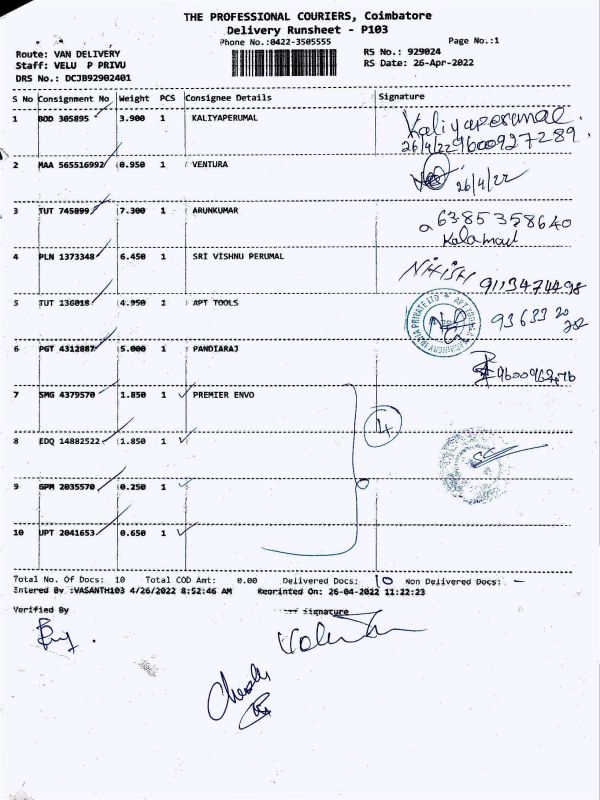 THE PROFESSIONAL COURIERS, Coimbatore
Delivery Runsheet - P103
Phone No.:0422-3505555
Page No.:1
Route: VAN DELIVERY
RS No.: 929024
Staff: VELU P PRIVU
RS Date: 26-Apr-2022
DRS No.: DCJB92902401
S No Consignment No Weight PCS Consignee Details Signature
1 BOD 305895 3.900 1 KALIYAPERUMAL Kaliyaperumal.
26/4/22 9600927289
2 MAA 565516992 0.950 1 VENTURA
26/4/22
3 TUT 745899 7.300 1 ARUNKUMAR 6385358640
4 PLN 1373348 6.450 1 SRI VISHNU PERUMAL
9113474498
5 TUT 136018 4.950 1 APT TOOLS 93633 20
6 PGT 4312887 5.000 1 PANDIARAJ
7 SMG 4379570 1.850 1 PREMIER ENVO
8 EDQ 14882522 1.850 1
9 GPM 2035570 0.250 1
10 UPT 2041653 0.650 1
Total No. Of Docs: 10 Total COD Amt: 0.00 Delivered Docs: 10 Non Delivered Docs: -
Intered By :VASANTH103 4/26/2022 8:52:46 AM Reprinted On: 26-04-2022 11:22:23
Verified By Signature